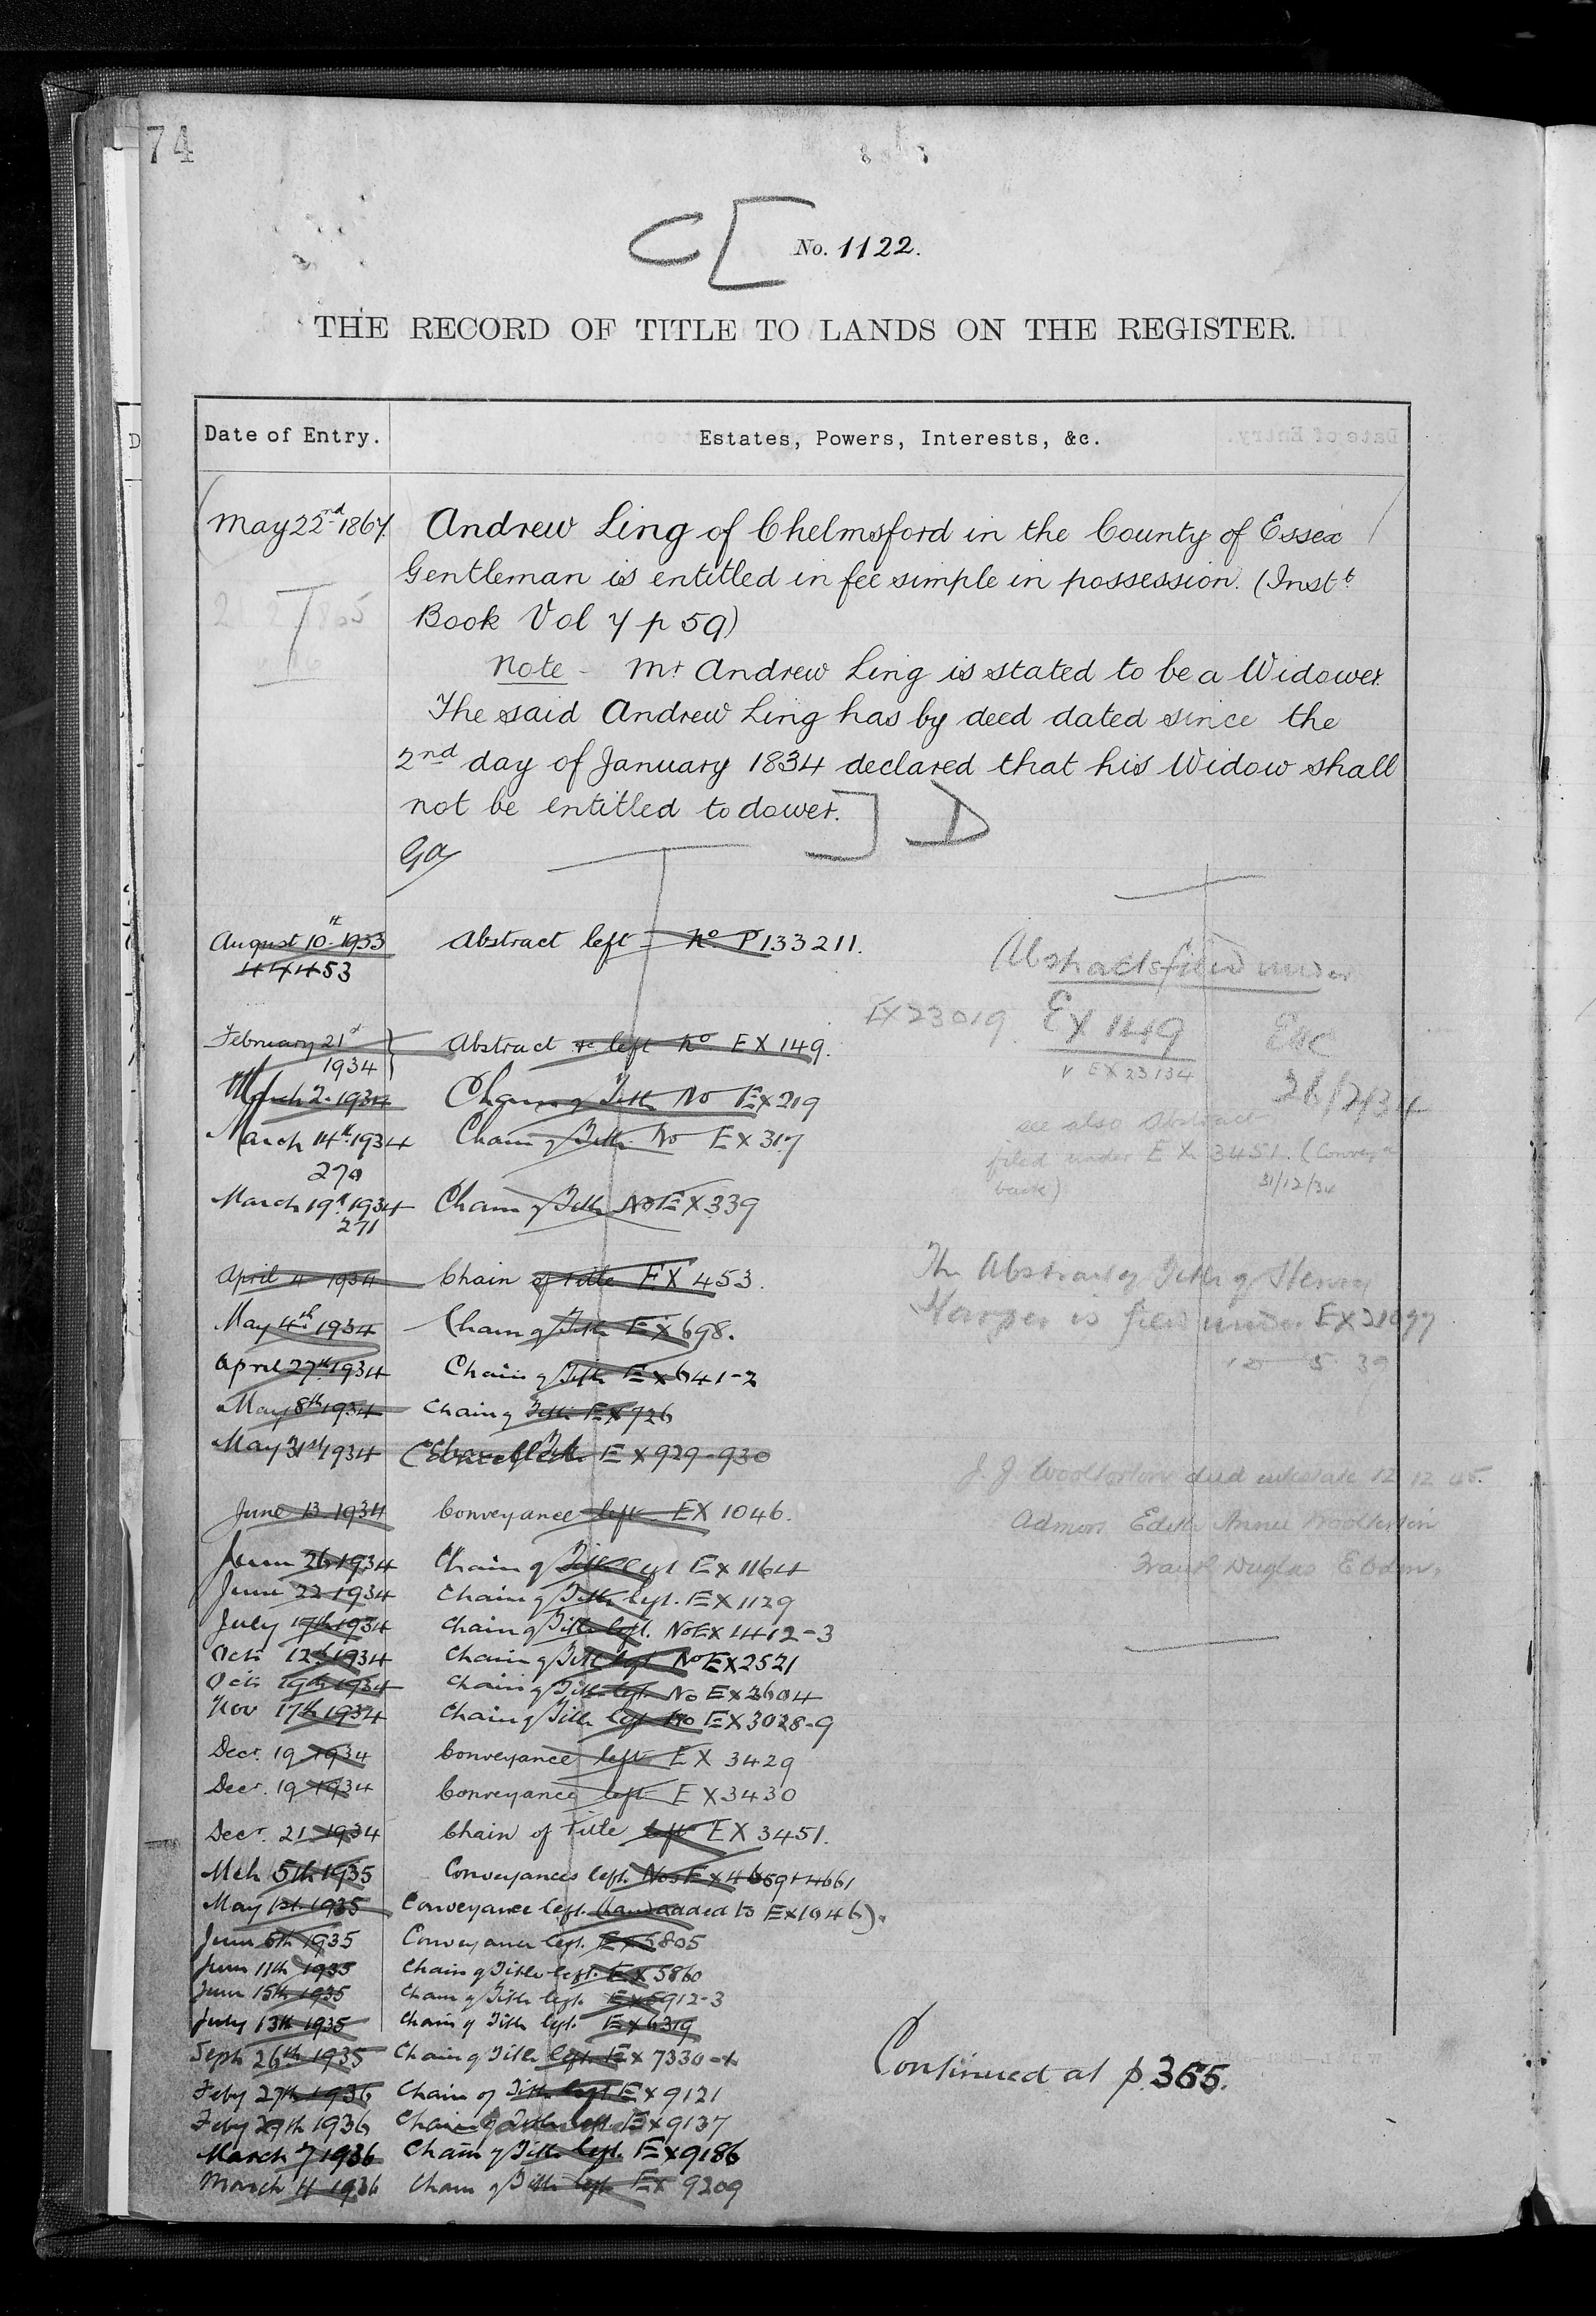 74
CE No. 1122.
THE RECORD OF TITLE TO LANDS ON THE REGISTER.
Date of Entry. Estates, Powers, Interests, &c.
May 22nd 1867. Andrew Ling of Chelmsford in the County of Essex
Gentleman is entitled in fee simple in possession. (Instt
Book Vol 7 p 59)
Note - Mr Andrew Ling is stated to be a Widower.
The said Andrew Ling has by deed dated since the
2nd day of January 1834 declared that his Widow shall
not be entitled to dower. D
August 10th 1933 Abstract left No P133211.
44453
February 21st 1934 Abstract &c left No EX 149.
March 2. 1934 Chain of Title No EX 219
March 14th 1934 Chain of Title No EX 317
270
March 19th 1934 Chain of Title No EX 339
271
April 4 1934 Chain of Title EX 453.
May 4th 1934 Chain of Title EX 698.
April 27th 1934 Chain of Title EX 641-2
May 8th 1934 Chain of Title EX 726
May 31st 1934 Title EX 929-930
June 13 1934 Conveyance left EX 1046.
June 26 1934 Chain of Title left EX 1164
June 22 1934 Chain of Title left. EX 1129
July 17th 1934 Chain of Title left. No EX 1412-3
Octr 12th 1934 Chain of Title left No EX 2521
Octr 19th 1934 Chain of Title left No EX 2604
Nov 17th 1934 Chain of Title left No EX 3028-9
Decr. 19 1934 Conveyance left EX 3429
Decr. 19 1934 Conveyance left EX 3430
Decr. 21 1934 Chain of Title left EX 3451.
Mch 5th 1935 Conveyances left. Nos EX 4659 + 4661
May 1st 1935 Conveyance left. added to EX 1046).
June 6th 1935 Conveyance left. EX 5805
June 11th 1935 Chain of Title left. EX 5860
June 15th 1935 Chain of Title left. EX 5912-3
July 13th 1935 Chain of Title left. EX 6319
Septr 26th 1935 Chain of Title left. EX 7330
Feby 27th 1936 Chain of Title left EX 9121
Feby 29th 1936 Chain of Title left. EX 9137
March 7 1936 Chain of Title left. EX 9186
March 11 1936 Chain of Title left EX 9209
Abstracts filed under
EX 23019. EX 149
v EX 23134
see also Abstract
filed under EX 3451. (Conveyce
back) 31/12/34
The Abstract of Title of Henry
Harper is filed under EX 21097
5 39
J. J. Woolterton died intestate 12 12 45.
Admors Edith Annie Woolterton
Continued at p. 365.